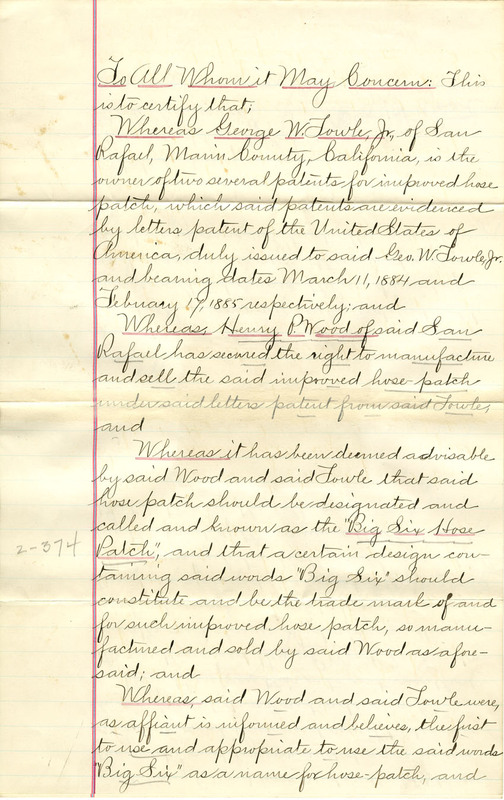 To All Whom it May Concern: This
is to certify that,
Whereas George W. Fowle, Jr. of San
Rafael, Marin County, California, is the
owner of two several patents for improved hose
patch, which said patents are evidenced
by letters patent of the United States of
America, duly issued to said Geo. W. Fowle, Jr.
and bearing dates March 11, 1884 and
February 17, 1885 respectively; and
Whereas, Henry P. Wood of said San
Rafael has secured the right to manufacture
and sell the said improved hose-patch
under said letters patent from said Fowle,
and
Whereas it has been deemed advisable
by said Wood and said Fowle that said
hose patch should be designated and
called and known as the "Big Six Hose
2-374
Patch", and that a certain design con-
taining said words "Big Six" should
constitute and be the trade mark of and
for such improved hose patch, so manu-
factured and sold by said Wood as afore-
said; and
Whereas, said Wood and said Fowle were,
as affiant is informed and believes, the first
to use and appropriate to use the said words
"Big Six" as a name for hose-patch, and